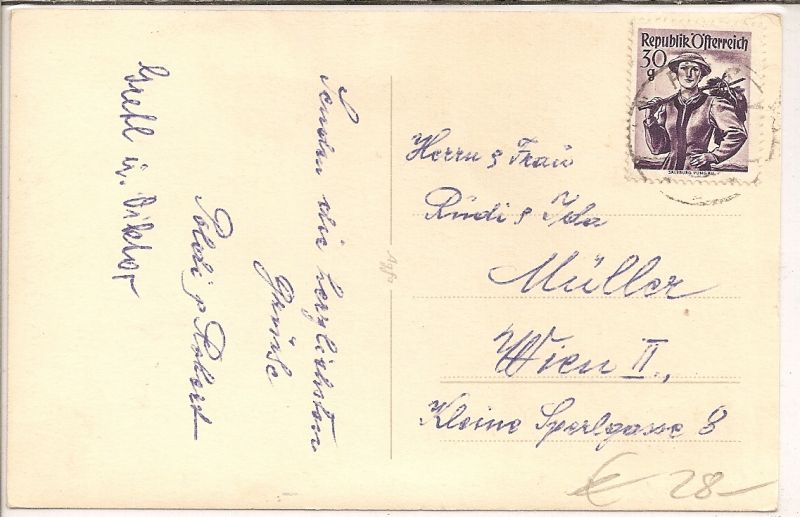 Senden die herzlichsten
Grüße
Poldi & Robert
Gretl u. Viktor
Republik Österreich
30
g
SALZBURG PONGAU
Herrn & Frau
Rudi & Ida
Müller
Wien II.,
Kleine Sperlgasse 8
Agfa
€ 28-